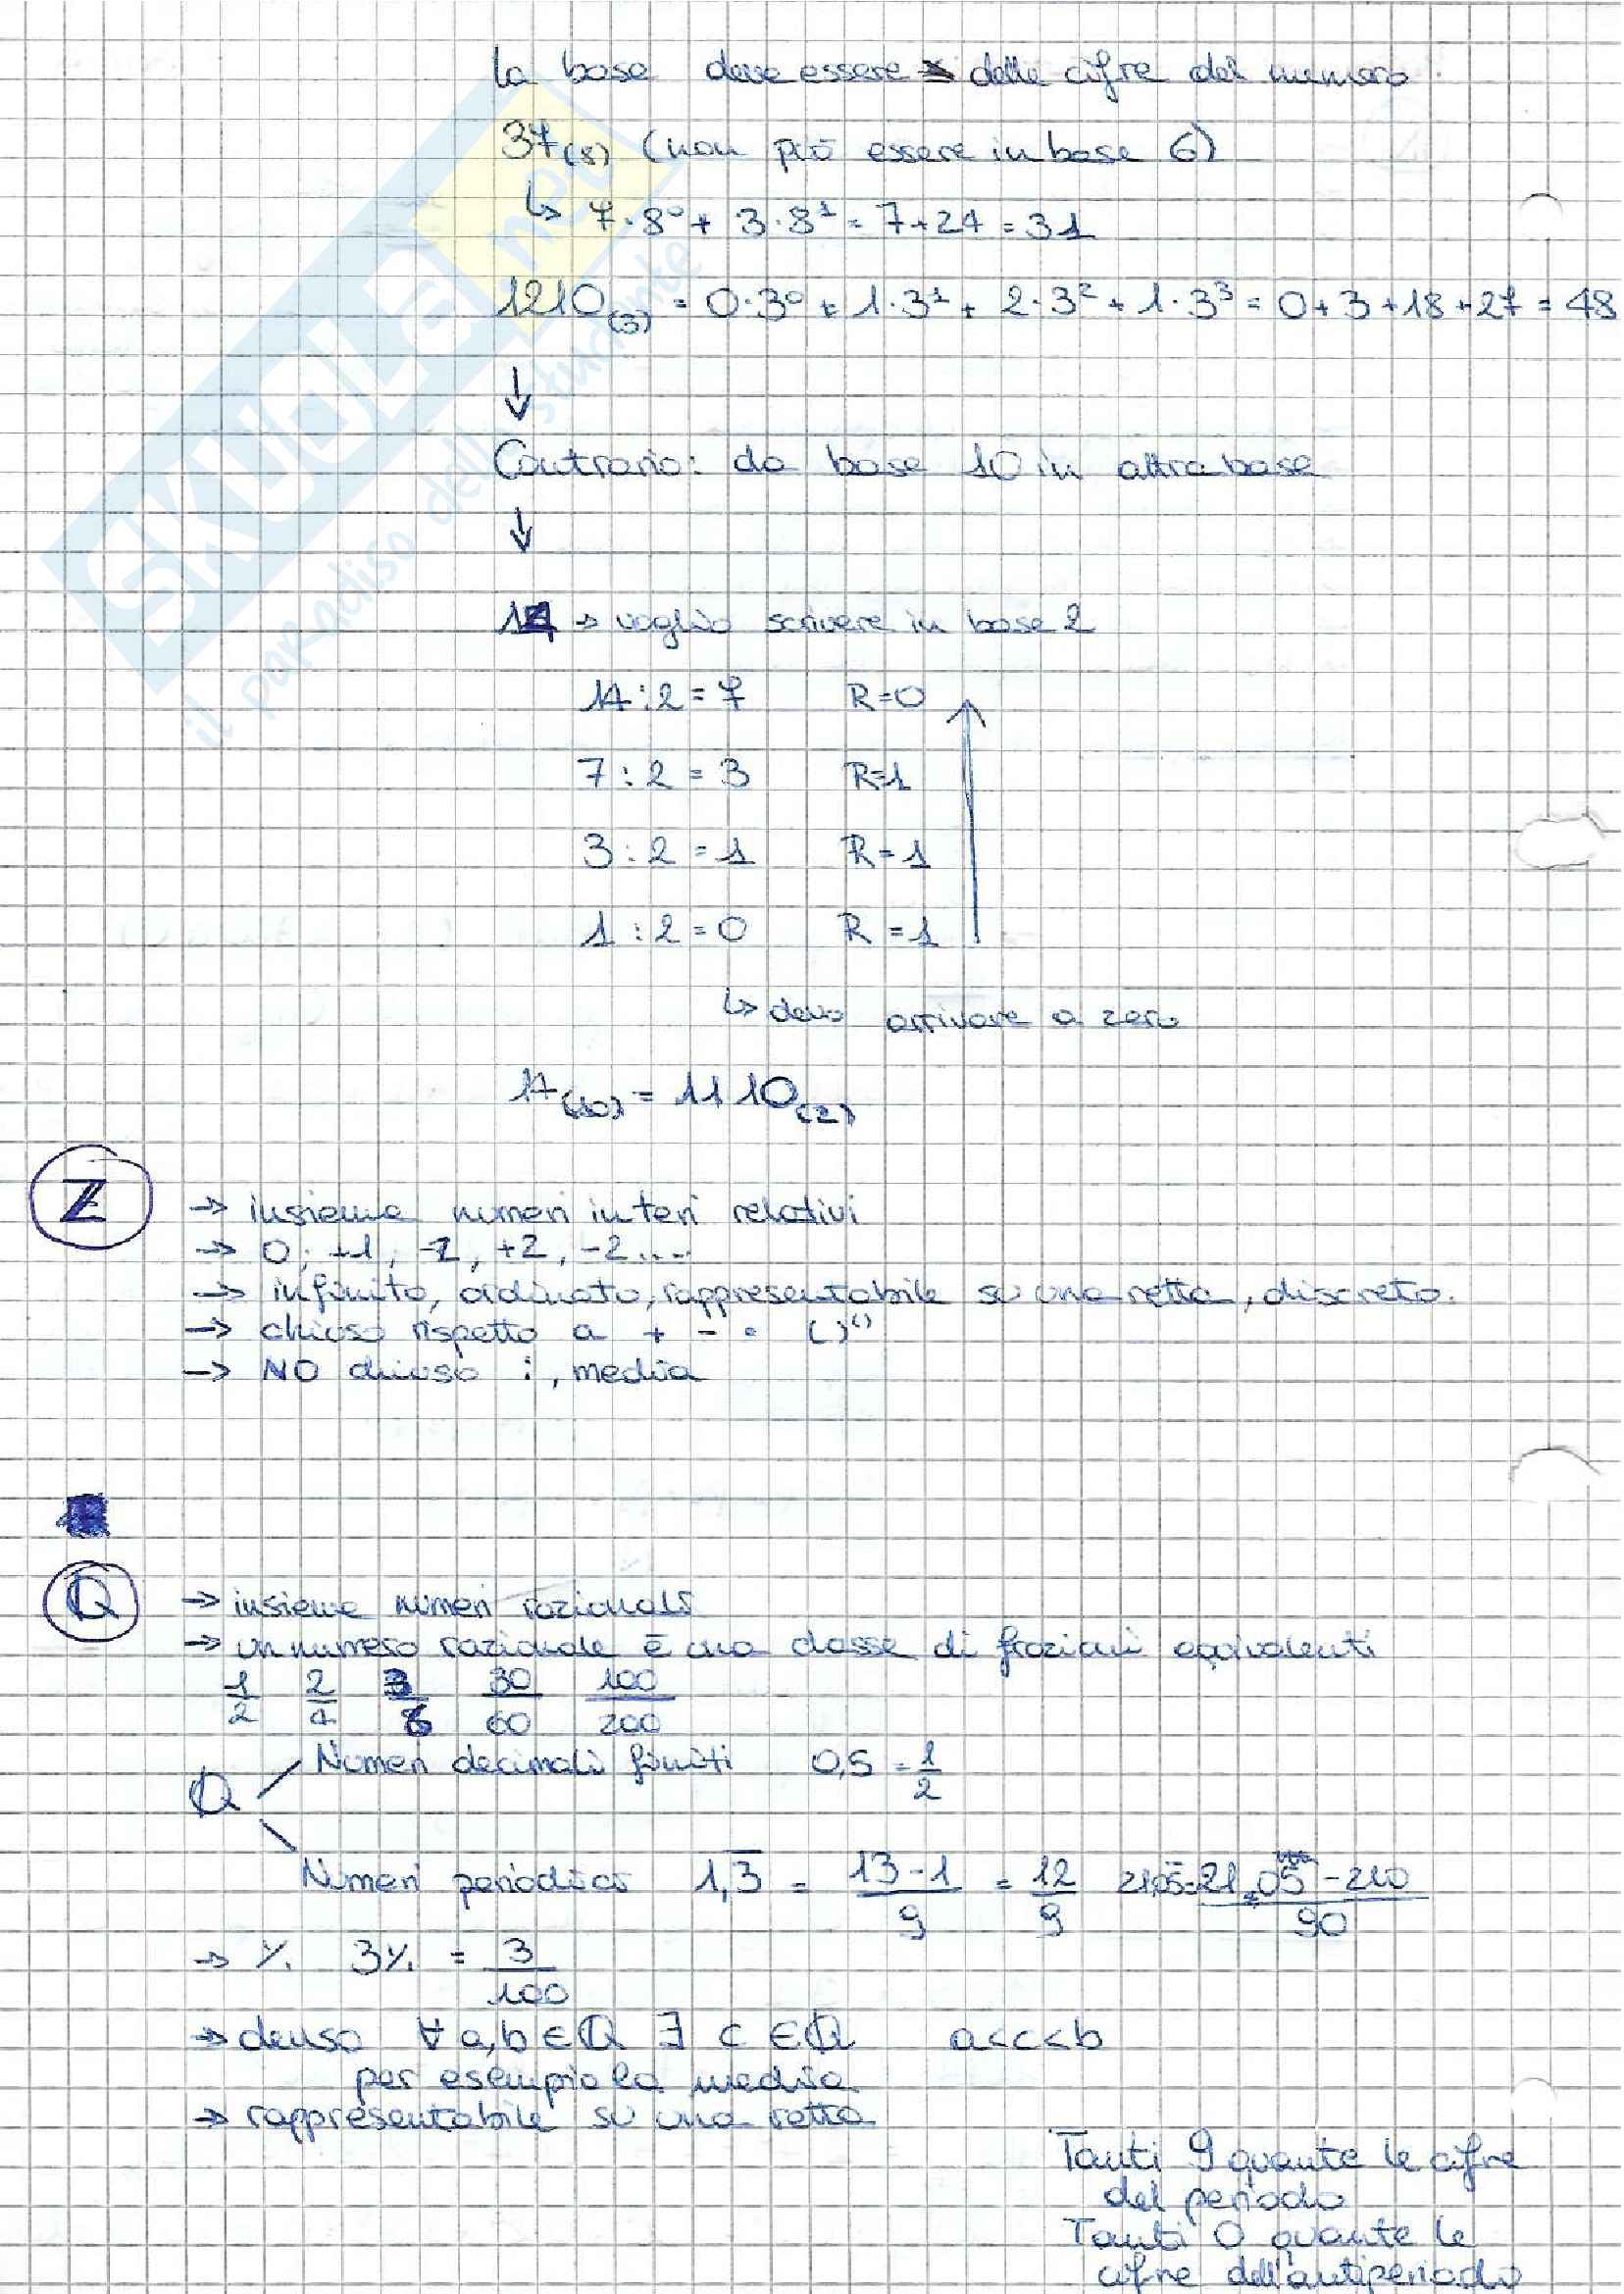 la base deve essere > delle cifre del numero
37(8) (non può essere in base 6)
↳ 7·8⁰ + 3·8¹ = 7+24 = 31
1210(3) = 0·3⁰ + 1·3¹ + 2·3² + 1·3³ = 0+3+18+27 = 48
↓
Contrario: da base 10 in altra base
↓
14 → voglio scrivere in base 2
14:2=7 R=0
7:2=3 R=1
3:2=1 R=1
1:2=0 R=1
↳ devo arrivare a zero
14(10) = 1110(2)
ℤ → insieme numeri interi relativi
→ 0, +1, -1, +2, -2....
→ infinito, ordinato, rappresentabile su una retta, discreto.
→ chiuso rispetto a + - · ( )⁽⁾
→ NO chiuso :, media
ℚ → insieme numeri razionali
→ un numero razionale è una classe di frazioni equivalenti
1/2 2/4 3/6 30/60 100/200
ℚ Numeri decimali finiti 0,5 = 1/2
Numeri periodici 1,3̅ = (13-1)/9 = 12/9 21,05̅ = (2105-210)/90
→ % 3% = 3/100
→ denso ∀ a,b ∈ ℚ ∃ c ∈ ℚ a<c<b
per esempio la media
→ rappresentabile su una retta
Tanti 9 quante le cifre
del periodo
Tanti 0 quante le
cifre dell'antiperiodo
SKUOLA.net
il paradiso dello studente